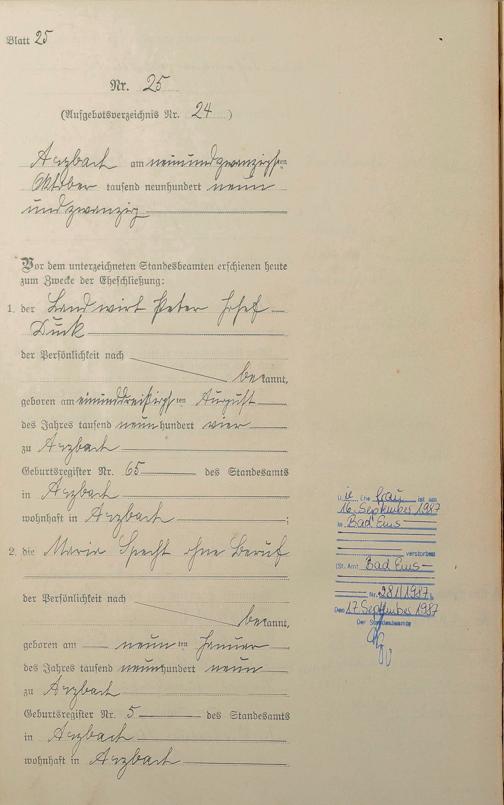 Blatt 25
Nr. 25
(Aufgebotsverzeichnis Nr. 24)
Arzbach am neunundzwanzigsten
Oktober tausend neunhundert neun
und zwanzig
Vor dem unterzeichneten Standesbeamten erschienen heute
zum Zwecke der Eheschließung:
1. der Landwirt Peter Josef
Duck
der Persönlichkeit nach
bekannt,
geboren am einunddreißigsten August
des Jahres tausend neunhundert vier
zu Arzbach
Geburtsregister Nr. 65 des Standesamts
in Arzbach
wohnhaft in Arzbach;
2. die Maria Specht ohne Beruf
der Persönlichkeit nach
bekannt,
geboren am neunten Januar
des Jahres tausend neunhundert neun
zu Arzbach
Geburtsregister Nr. 5 des Standesamts
in Arzbach
wohnhaft in Arzbach
Die Ehefrau ist am
16. September 1987
in Bad Ems
verstorben
(St. Amt Bad Ems
Nr. 281/1987)
Den 17. September 1987
Der Standesbeamte